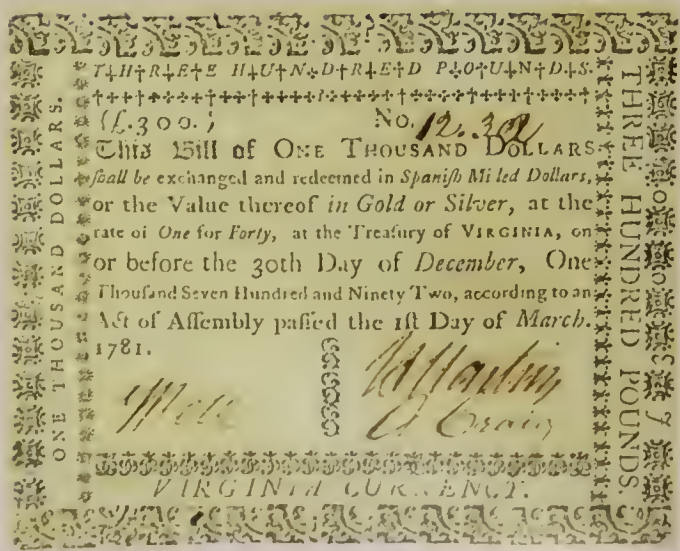 T†H†R†E†E H†U†N†D†R†E†D P†O†U†N†D†S.
(£.300.) No. 12.302
This Bill of ONE THOUSAND DOLLARS
ſhall be exchanged and redeemed in Spaniſh Milled Dollars,
or the Value thereof in Gold or Silver, at the
rate of One for Forty, at the Treaſury of VIRGINIA, on
or before the 30th Day of December, One
Thouſand Seven Hundred and Ninety Two, according to an
Act of Aſſembly paſſed the 1ſt Day of March.
1781.
Craig
VIRGINIA CURRENCY.
ONE THOUSAND DOLLARS.
THREE HUNDRED POUNDS.